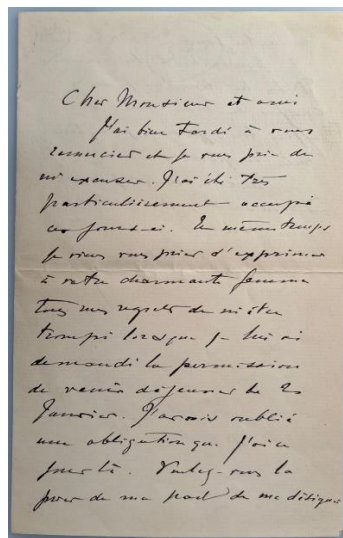 Cher Monsieur et ami
J'ai bien tardé à vous
remercier et je vous prie de
m'excuser. J'ai été très
particulièrement occupé
ces jours-ci. En même temps
je viens vous prier d'exprimer
à votre charmante femme
tous mes regrets de m'être
trompé lorsque je lui ai
demandé la permission
de venir déjeuner le 20
Janvier. J'avais oublié
une obligation que j'ai ce
jour là. Voulez-vous la
prier de ma part de me désigner